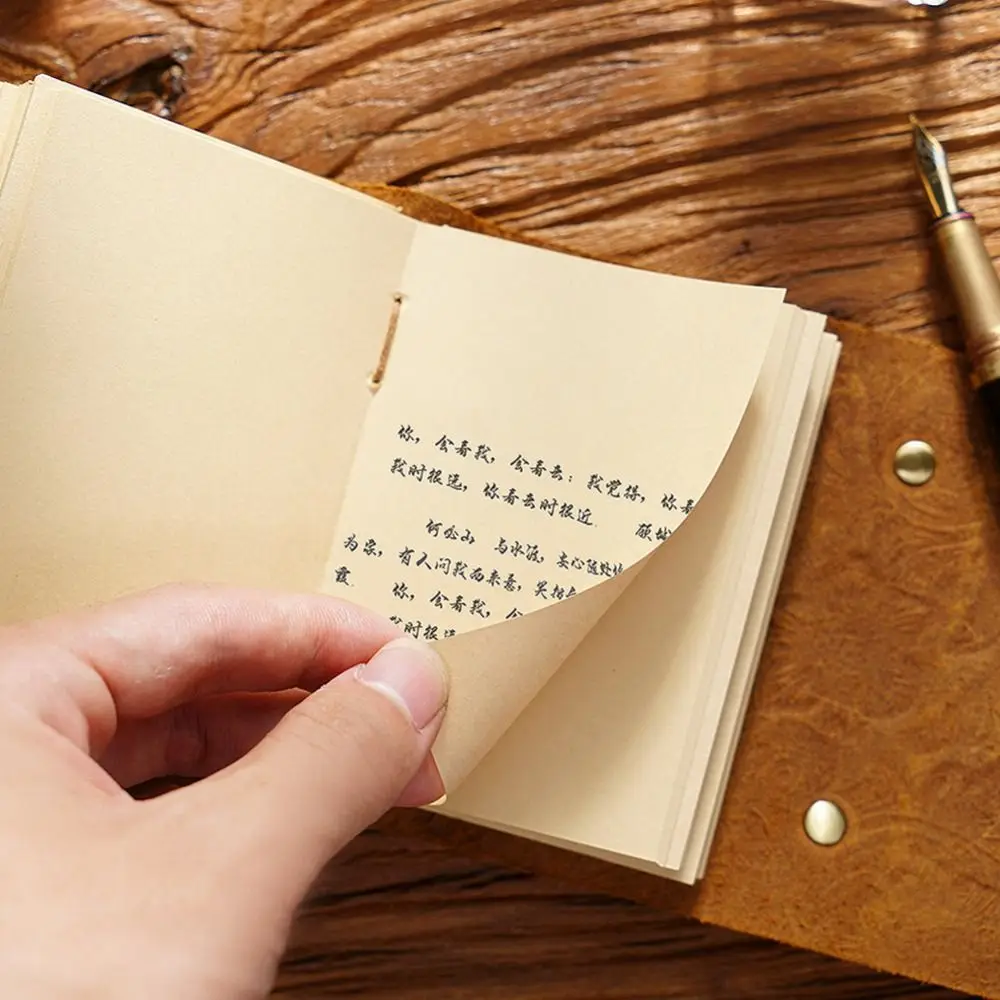 你，会看我，会看云：我觉得，你看
我时很远，你看云时很近. 顾城
何必山 与水滨，安心随处
为家，有人问我西来意，笑指
霞.
你，会看我，
我时很远